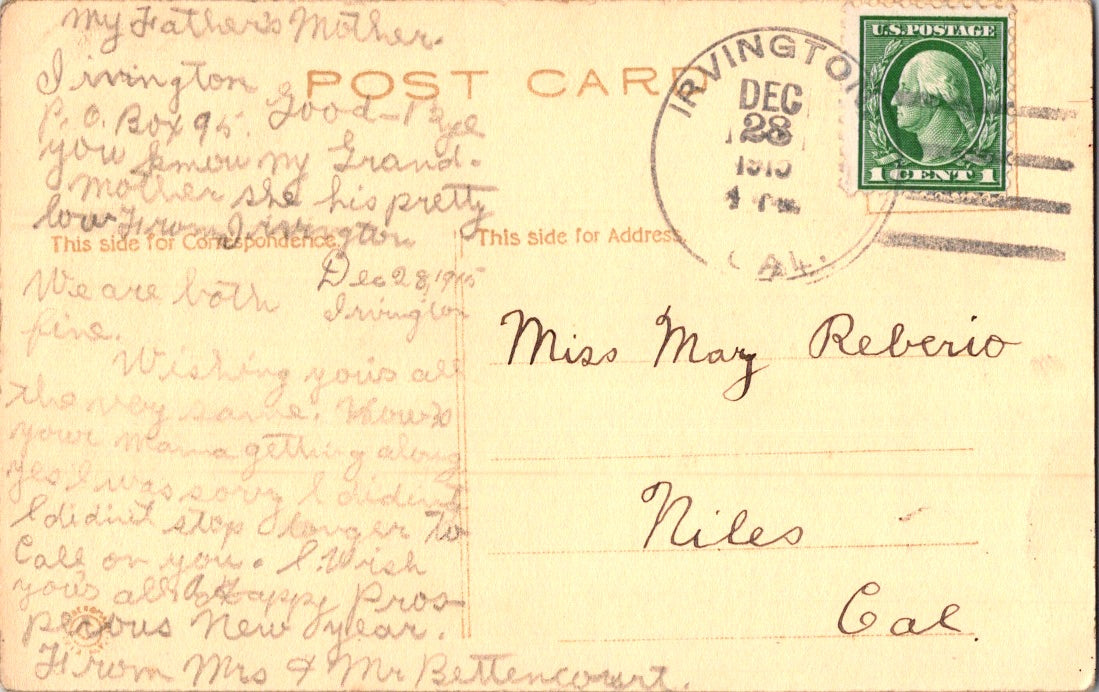 My Father's Mother.
Irvington
P.O. Box 95. Good-Bye
you know my Grand-
mother she his pretty
low From Irvington
POST CARD
This side for Correspondence.
This side for Address.
IRVINGTON
DEC
28
1915
4 PM
CAL.
U.S. POSTAGE
1 CENT 1
Dec 28, 1915
Irvington
We are both
fine.
Wishing you's all
the very same. How's
your mama gething along
yes I was sorry I dident
I didin't stop longer To
Call on you. I. Wish
you's all A Happy Pros-
perous New year.
From Mrs & Mr Bettencourt.
Miss Mary Reberio
Niles
Cal.